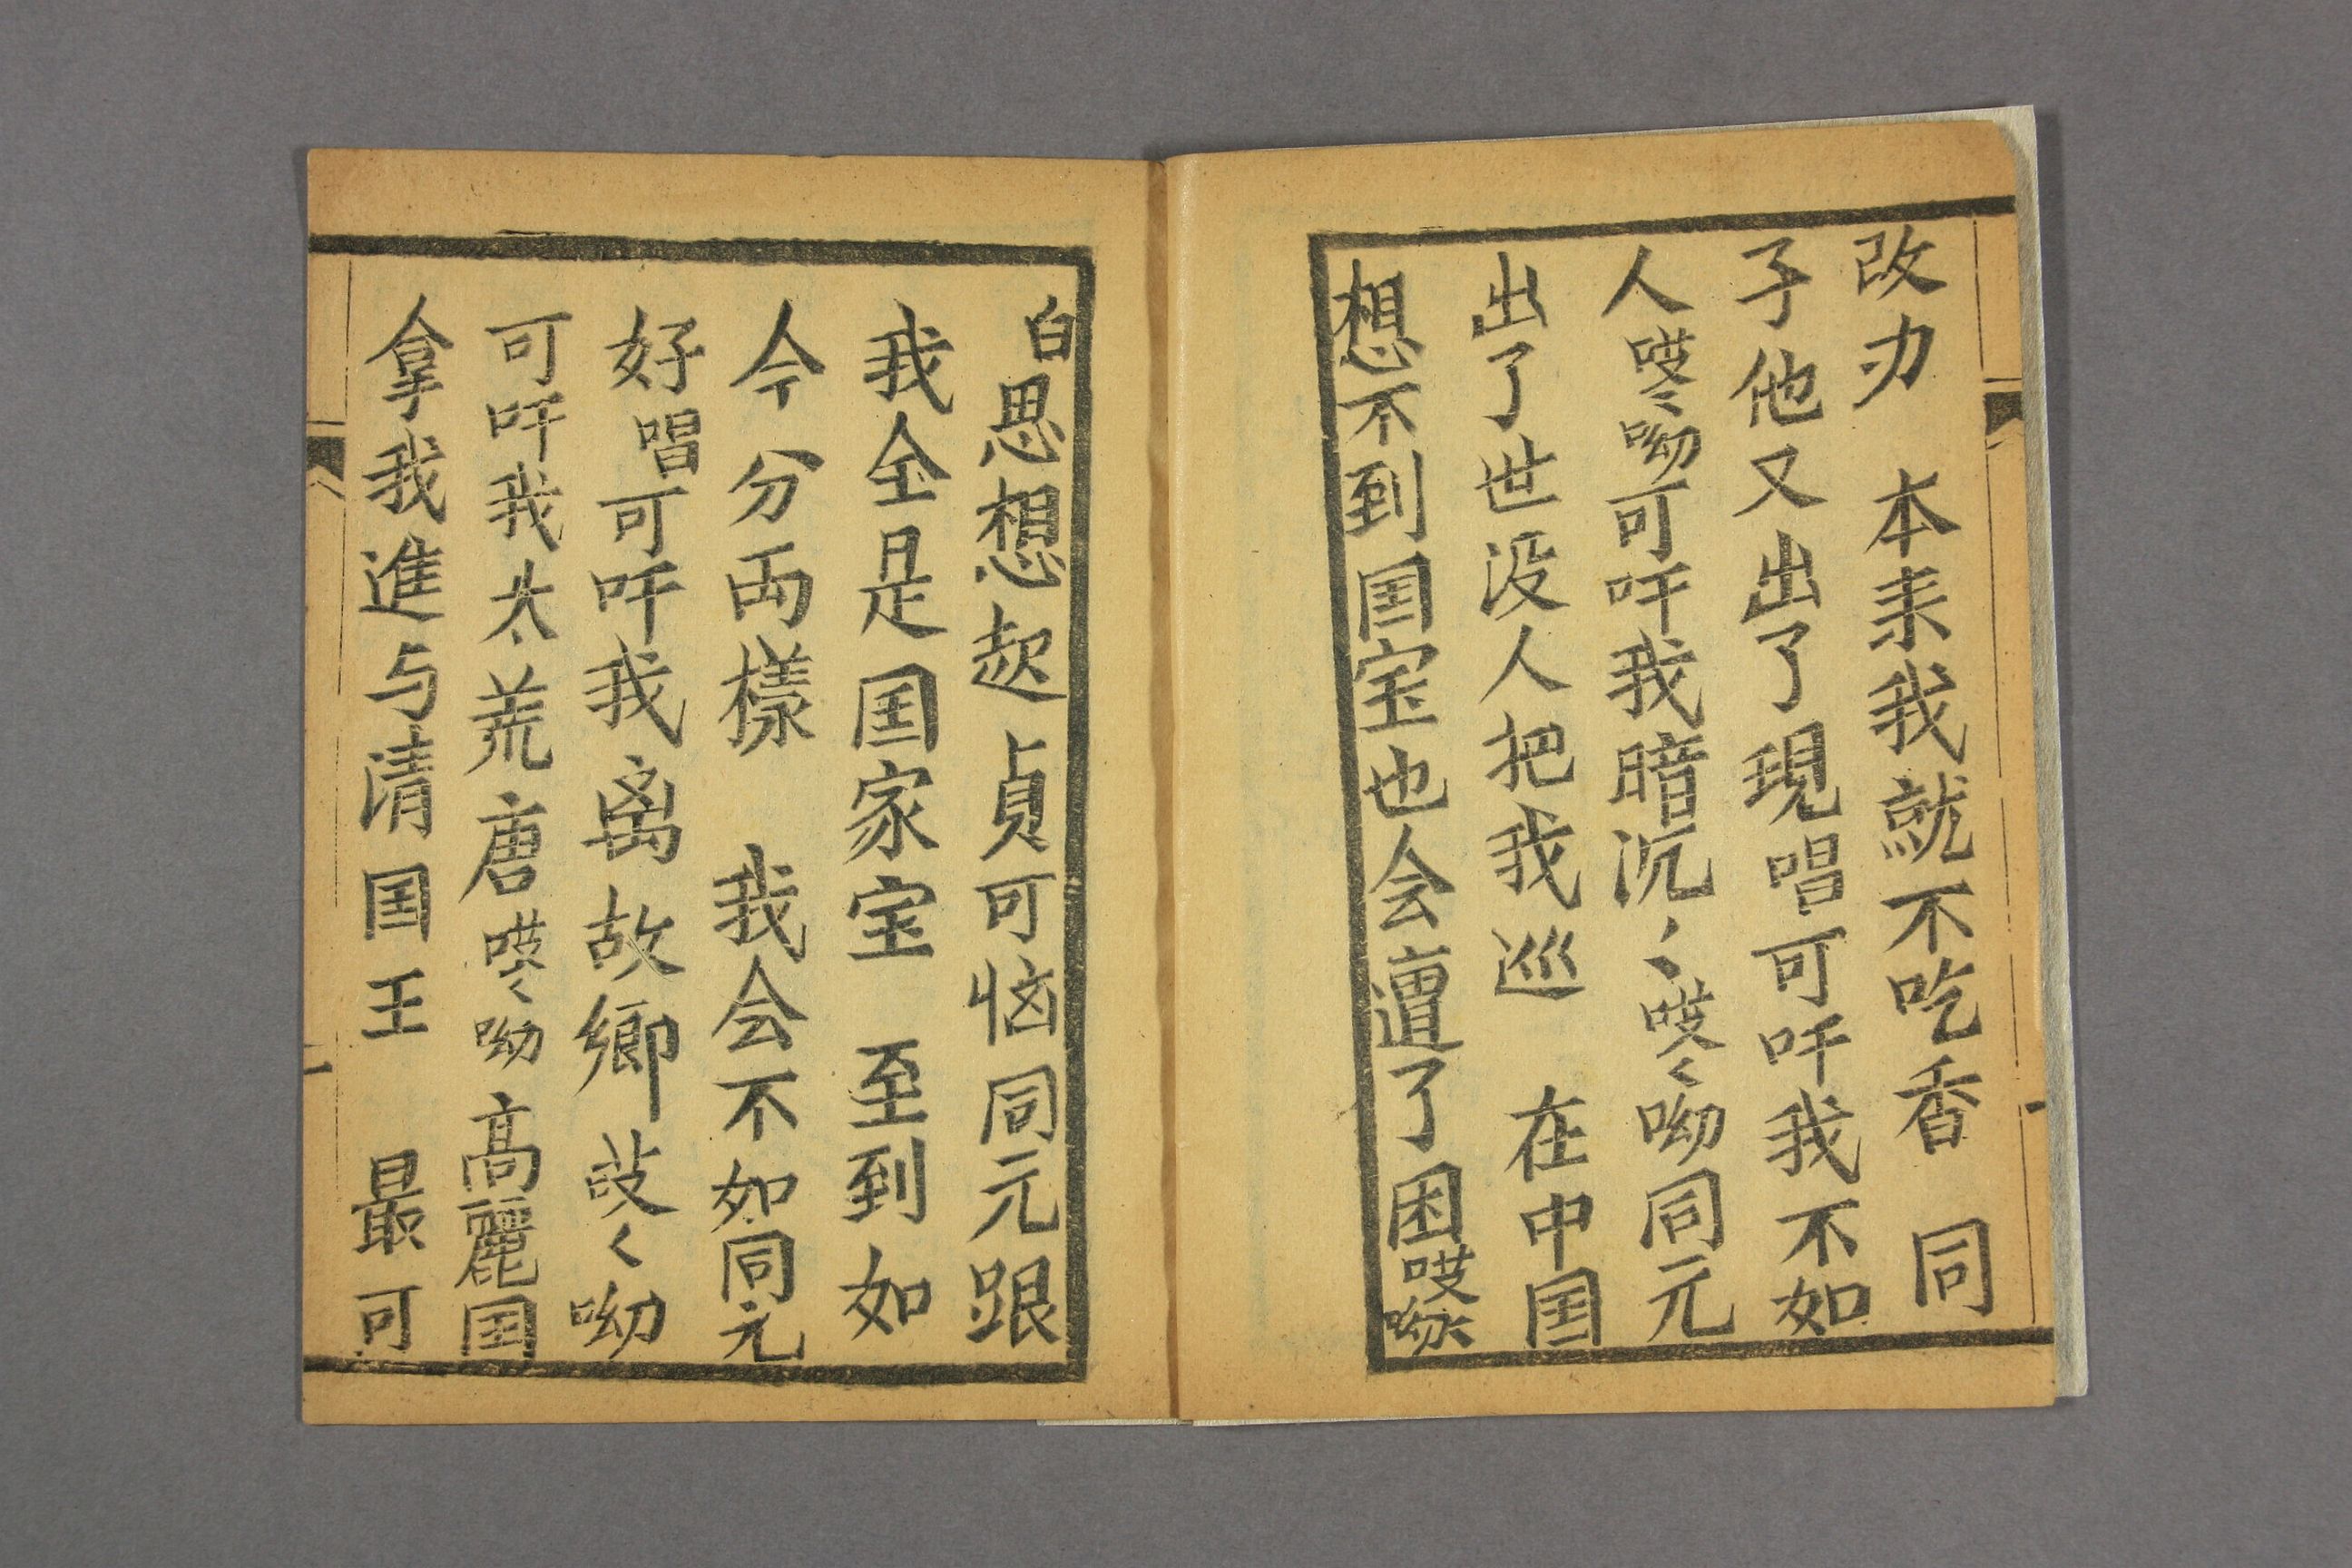 改办　本来我就不吃香　同
子他又出了現唱可吀我不如
人哎々呦可吀我暗沉丶丶哎々呦同元
出了世没人把我巡　在中国
想不到国宝也会遭了困哎呦々
白思想起貞可恼同元跟
我全是国家宝　至到如
今分两樣　我会不如同元
好唱可吀我离故鄉哎々呦
可吀我太荒唐哎々呦高麗国
拿我進与清国王　最可